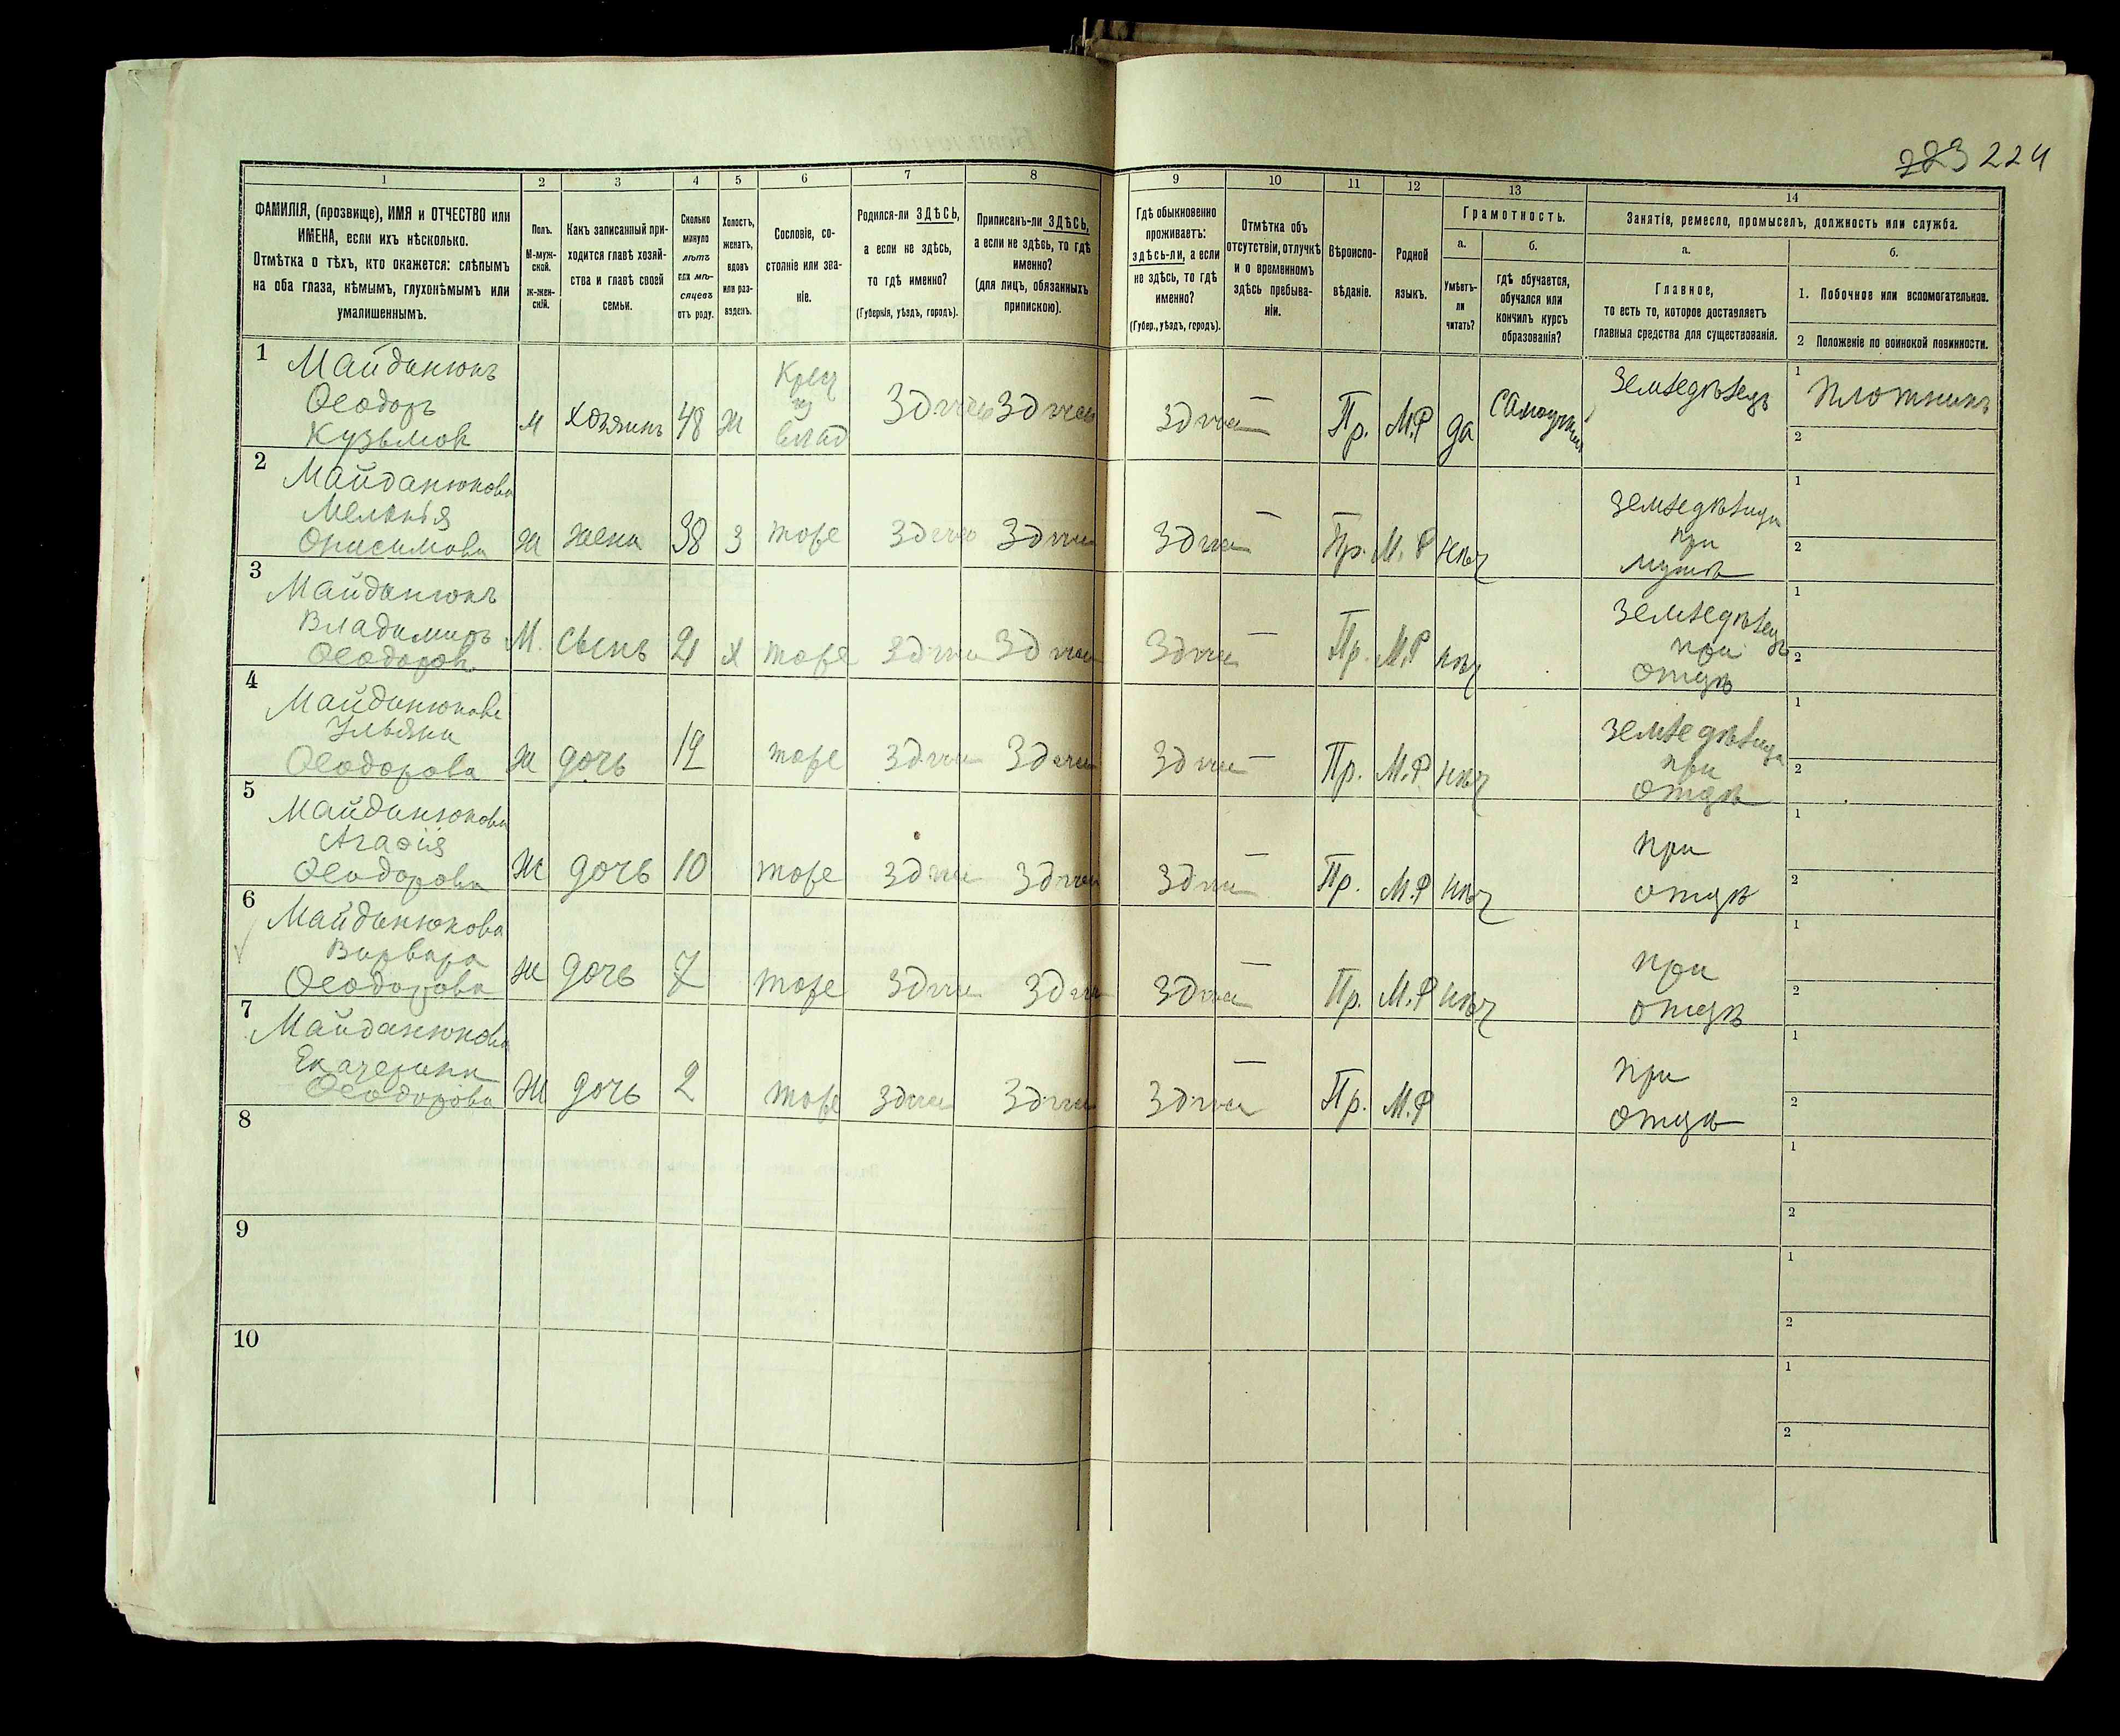 223 224
1 2 3 4 5 6 7 8 9 10 11 12 13 14
ФАМИЛІЯ, (прозвище), ИМЯ и ОТЧЕСТВО или
ИМЕНА, если ихъ нѣсколько.
Отмѣтка о тѣхъ, кто окажется: слѣпымъ
на оба глаза, нѣмымъ, глухонѣмымъ или
умалишеннымъ.
Полъ.
М-муж-
ской.
ж-жен-
скій.
Какъ записанный при-
ходится главѣ хозяй-
ства и главѣ своей
семьи.
Сколько
минуло
лѣтъ
или мѣ-
сяцевъ
отъ роду.
Холостъ,
женатъ,
вдовъ
или раз-
веденъ.
Сословіе, со-
стояніе или зва-
ніе.
Родился-ли ЗДѢСЬ,
а если не здѣсь,
то гдѣ именно?
(Губернія, уѣздъ, городъ).
Приписанъ-ли ЗДѢСЬ,
а если не здѣсь, то гдѣ
именно?
(для лицъ, обязанныхъ
припискою).
Гдѣ обыкновенно
проживаетъ:
здѣсь-ли, а если
не здѣсь, то гдѣ
именно?
(Губер., уѣздъ, городъ).
Отмѣтка объ
отсутствіи, отлучкѣ
и о временномъ
здѣсь пребыва-
ніи.
Вѣроиспо-
вѣданіе.
Родной
языкъ.
Грамотность.
а.
Умѣетъ-
ли
читать?
б.
гдѣ обучается,
обучался или
кончилъ курсъ
образованія?
Занятія, ремесло, промыселъ, должность или служба.
а.
Главное,
то есть то, которое доставляетъ
главныя средства для существованія.
б.
1. Побочное или вспомогательное.
2 Положеніе по воинской повинности.
1 Майданюкъ
Ѳеодоръ
Кузьмовъ
М хозяинъ 48 Ж
Крес
из
влад
Здѣсь Здѣсь Здѣсь — Пр. М.Р да
Земледѣлецъ
1 Плотникъ
2
2 Майданюкова
Меланія
Онисимова
Ж жена 38 З тоже Здѣсь Здѣсь Здѣсь — Пр. М.Р нѣт
Земледѣлица
при
мужѣ
1
2
3 Майданюкъ
Владимиръ
Ѳеодоровъ
М. сынъ 21 Х тоже Здѣсь Здѣсь Здѣсь — Пр. М.Р нѣт
Земледѣлецъ
при
отцѣ
1
2
4 Майданюкова
Ульяна
Ѳеодорова
Ж дочь 12 тоже Здѣсь Здѣсь Здѣсь — Пр. М.Р нѣт
Земледѣлица
при
отцѣ
1
2
5 Майданюкова
Агафія
Ѳеодорова
Ж дочь 10 тоже Здѣсь Здѣсь Здѣсь — Пр. М.Р нѣт
при
отцѣ
1
2
6 Майданюкова
Варвара
Ѳеодорова
Ж дочь 7 тоже Здѣсь Здѣсь Здѣсь — Пр. М.Р нѣт
при
отцѣ
1
2
7 Майданюкова
Екатерина
Ѳеодорова
Ж дочь 2 тоже Здѣсь Здѣсь Здѣсь — Пр. М.Р
при
отцѣ
1
2
8
1
2
9
1
2
10
1
2